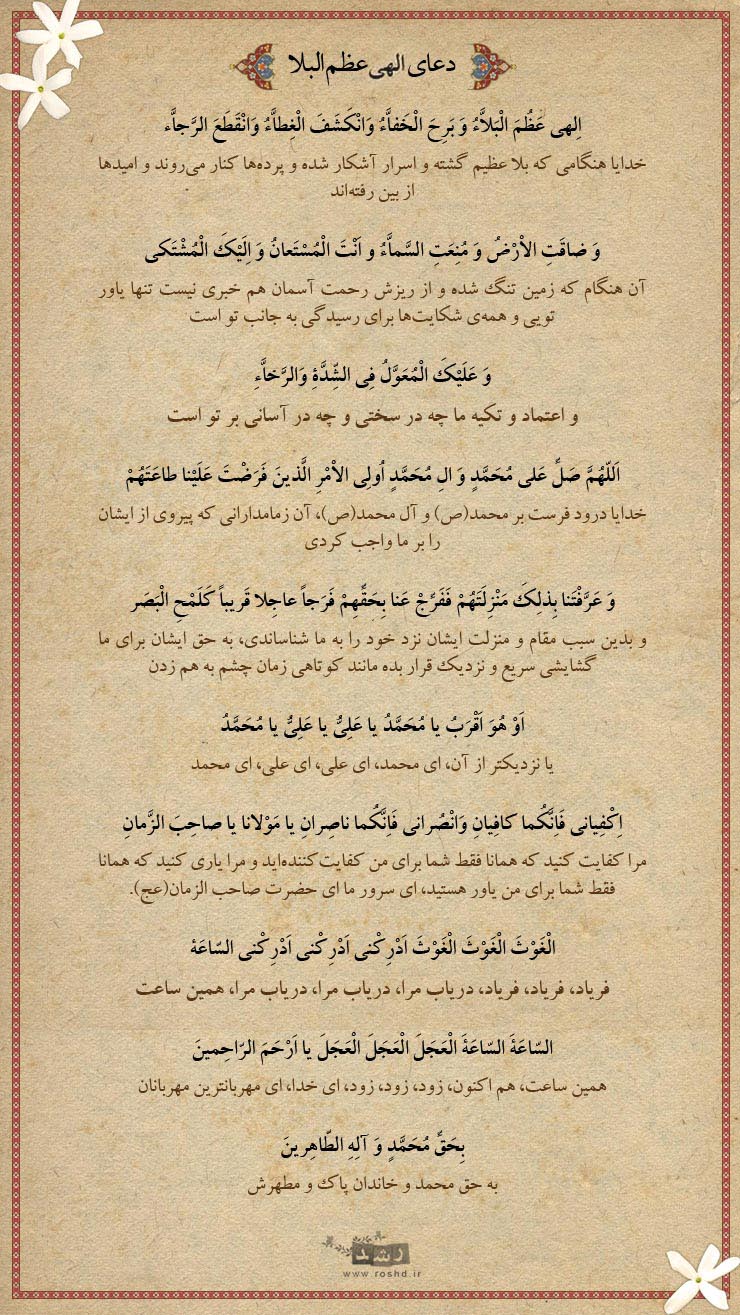 دعای الهی عظم البلا
اِلهی عَظُمَ الْبَلاَّءُ وَ بَرِحَ الْخَفاَّءُ وَانْكَشَفَ الْغِطاَّءُ وَانْقَطَعَ الرَّجاَّء
خدایا هنگامی که بلا عظیم گشته و اسرار آشکار شده و پرده‌ها کنار می‌روند و امیدها
از بین رفته‌اند
وَ ضاقَتِ الاْرْضُ وَ مُنِعَتِ السَّماَّءُ و اَنْتَ الْمُسْتَعانُ وَ اِلَيْكَ الْمُشْتَكى
آن هنگام که زمین تنگ شده و از ریزش رحمت آسمان هم خبری نیست تنها یاور
تویی و همه‌ی شکایت‌ها برای رسیدگی به جانب تو است
وَ عَلَيْكَ الْمُعَوَّلُ فِى الشِّدَّةِ وَالرَّخاَّءِ
و اعتماد و تکیه ما چه در سختی و چه در آسانی بر تو است
اَللّهُمَّ صَلِّ عَلى مُحَمَّدٍ وَ الِ مُحَمَّدٍ اُولِى الاْمْرِ الَّذينَ فَرَضْتَ عَلَيْنا طاعَتَهُمْ
خدایا درود فرست بر محمد(ص) و آل محمد(ص)، آن زمامدارانی که پیروی از ایشان
را بر ما واجب کردی
وَ عَرَّفْتَنا بِذلِكَ مَنْزِلَتَهُمْ فَفَرِّجْ عَنا بِحَقِّهِمْ فَرَجاً عاجِلا قَريباً كَلَمْحِ الْبَصَر
و بدین سبب مقام و منزلت ایشان نزد خود را به ما شناساندی، به حق ایشان برای ما
گشایشی سریع و نزدیک قرار بده مانند کوتاهی زمان چشم به هم زدن
اَوْ هُوَ اَقْرَبُ يا مُحَمَّدُ يا عَلِىُّ يا عَلِىُّ يا مُحَمَّدُ
یا نزدیکتر از آن، ای محمد، ای علی، ای علی، ای محمد
اِكْفِيانى فَاِنَّكُما كافِيانِ وَانْصُرانى فَاِنَّكُما ناصِرانِ يا مَوْلانا يا صاحِبَ الزَّمانِ
مرا کفایت کنید که همانا فقط شما برای من کفایت‌کننده‌اید و مرا یاری کنید که همانا
فقط شما برای من یاور هستید، ای سرور ما ای حضرت صاحب الزمان(عج).
الْغَوْثَ الْغَوْثَ الْغَوْثَ اَدْرِكْنى اَدْرِكْنى اَدْرِكْنى السّاعَهَْ
فریاد، فریاد، فریاد، دریاب مرا، دریاب مرا، دریاب مرا، همین ساعت
السّاعَةَ السّاعَةَ الْعَجَلَ الْعَجَلَ الْعَجَلَ يا اَرْحَمَ الرّاحِمينَ
همین ساعت، هم اکنون، زود، زود، زود، ای خدا، ای مهربانترین مهربانان
بِحَقِّ مُحَمَّدٍ وَ آلِهِ الطّاهِرينَ
به حق محمد و خاندان پاک و مطهرش
رشد
www.roshd.ir